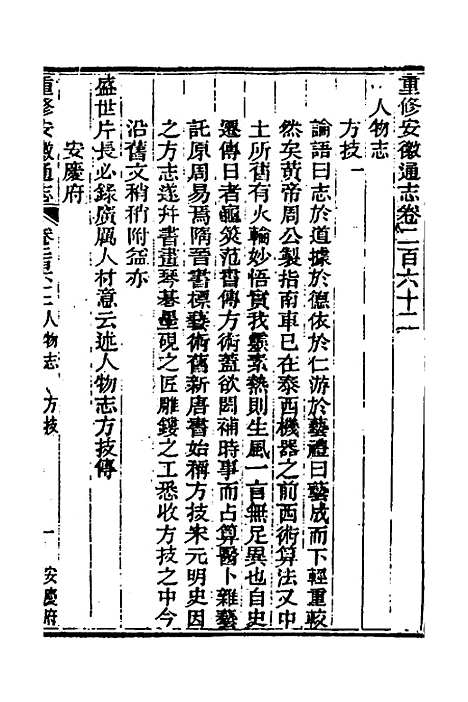 重修安徽通志卷二百六十二
人物志
方技一
論語曰志於道據於德依於仁游於藝禮曰藝成而下輕重較
然矣黃帝周公製指南車已在泰西機器之前西術算法又中
土所舊有火輪妙悟實我素熱則生風一言無足異也自史
遷傳日者龜筴范書傳方術蓋欲罔補時事而占算醫卜雜藝
託原周易焉隋晉書標藝術舊新唐書始稱方技宋元明史因
之方志遂幷書畫琴棊墨硯之匠雕鏤之工悉收方技之中今
沿舊文稍稍附益亦
盛世片長必錄廣厲人材意云述人物志方技傳
安慶府
重修安徽通志 卷二百六十二 人物志 方技 一 安慶府